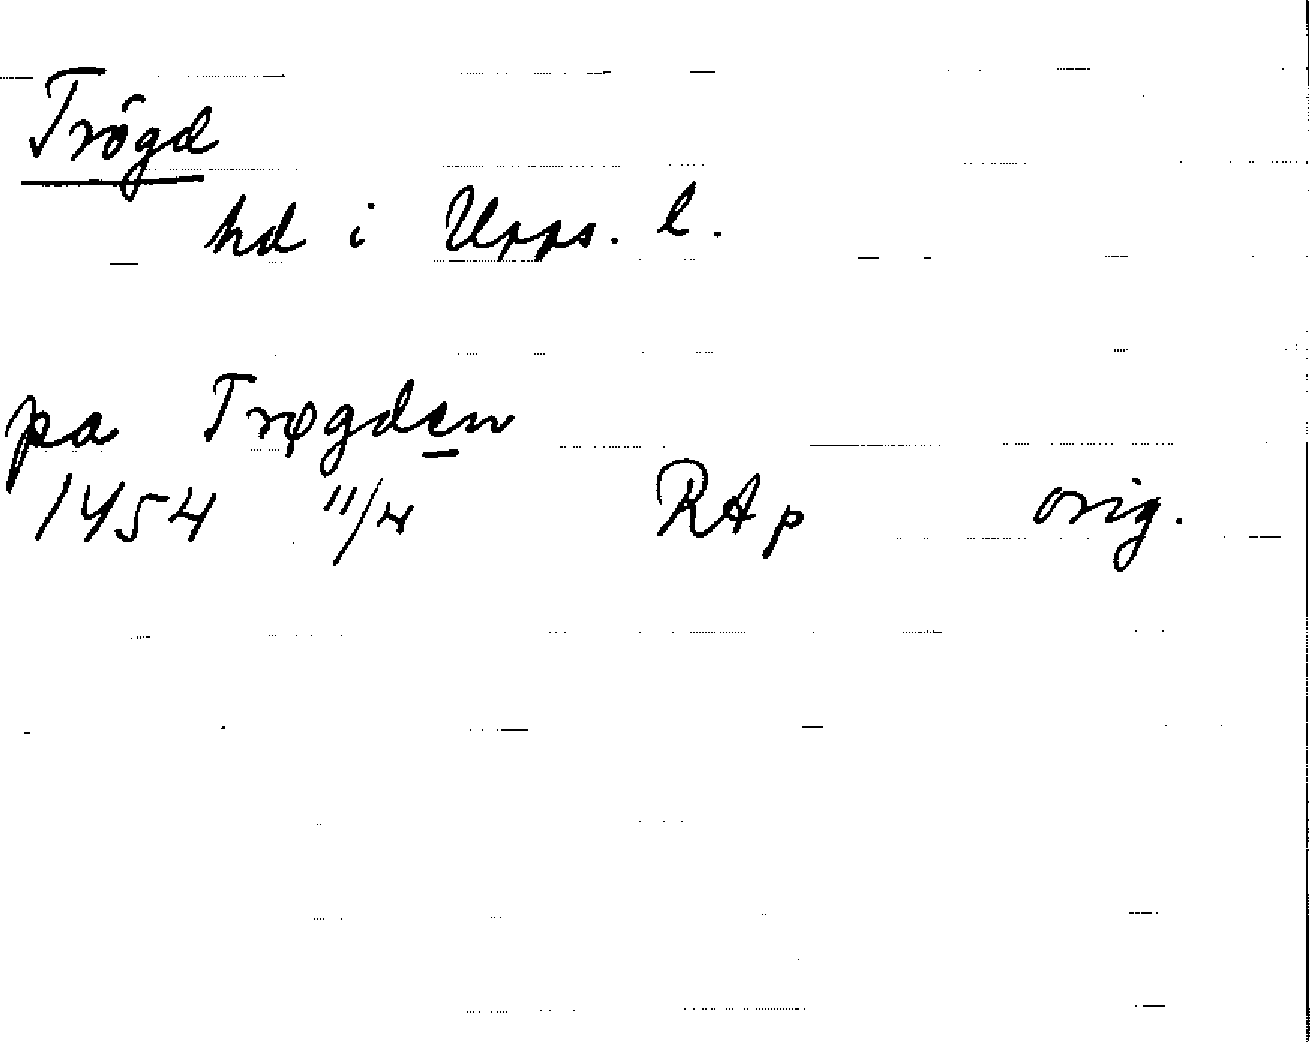 Trögd
hd i Upps. l.
pa Trøgden
1454 11/4 RAp orig.